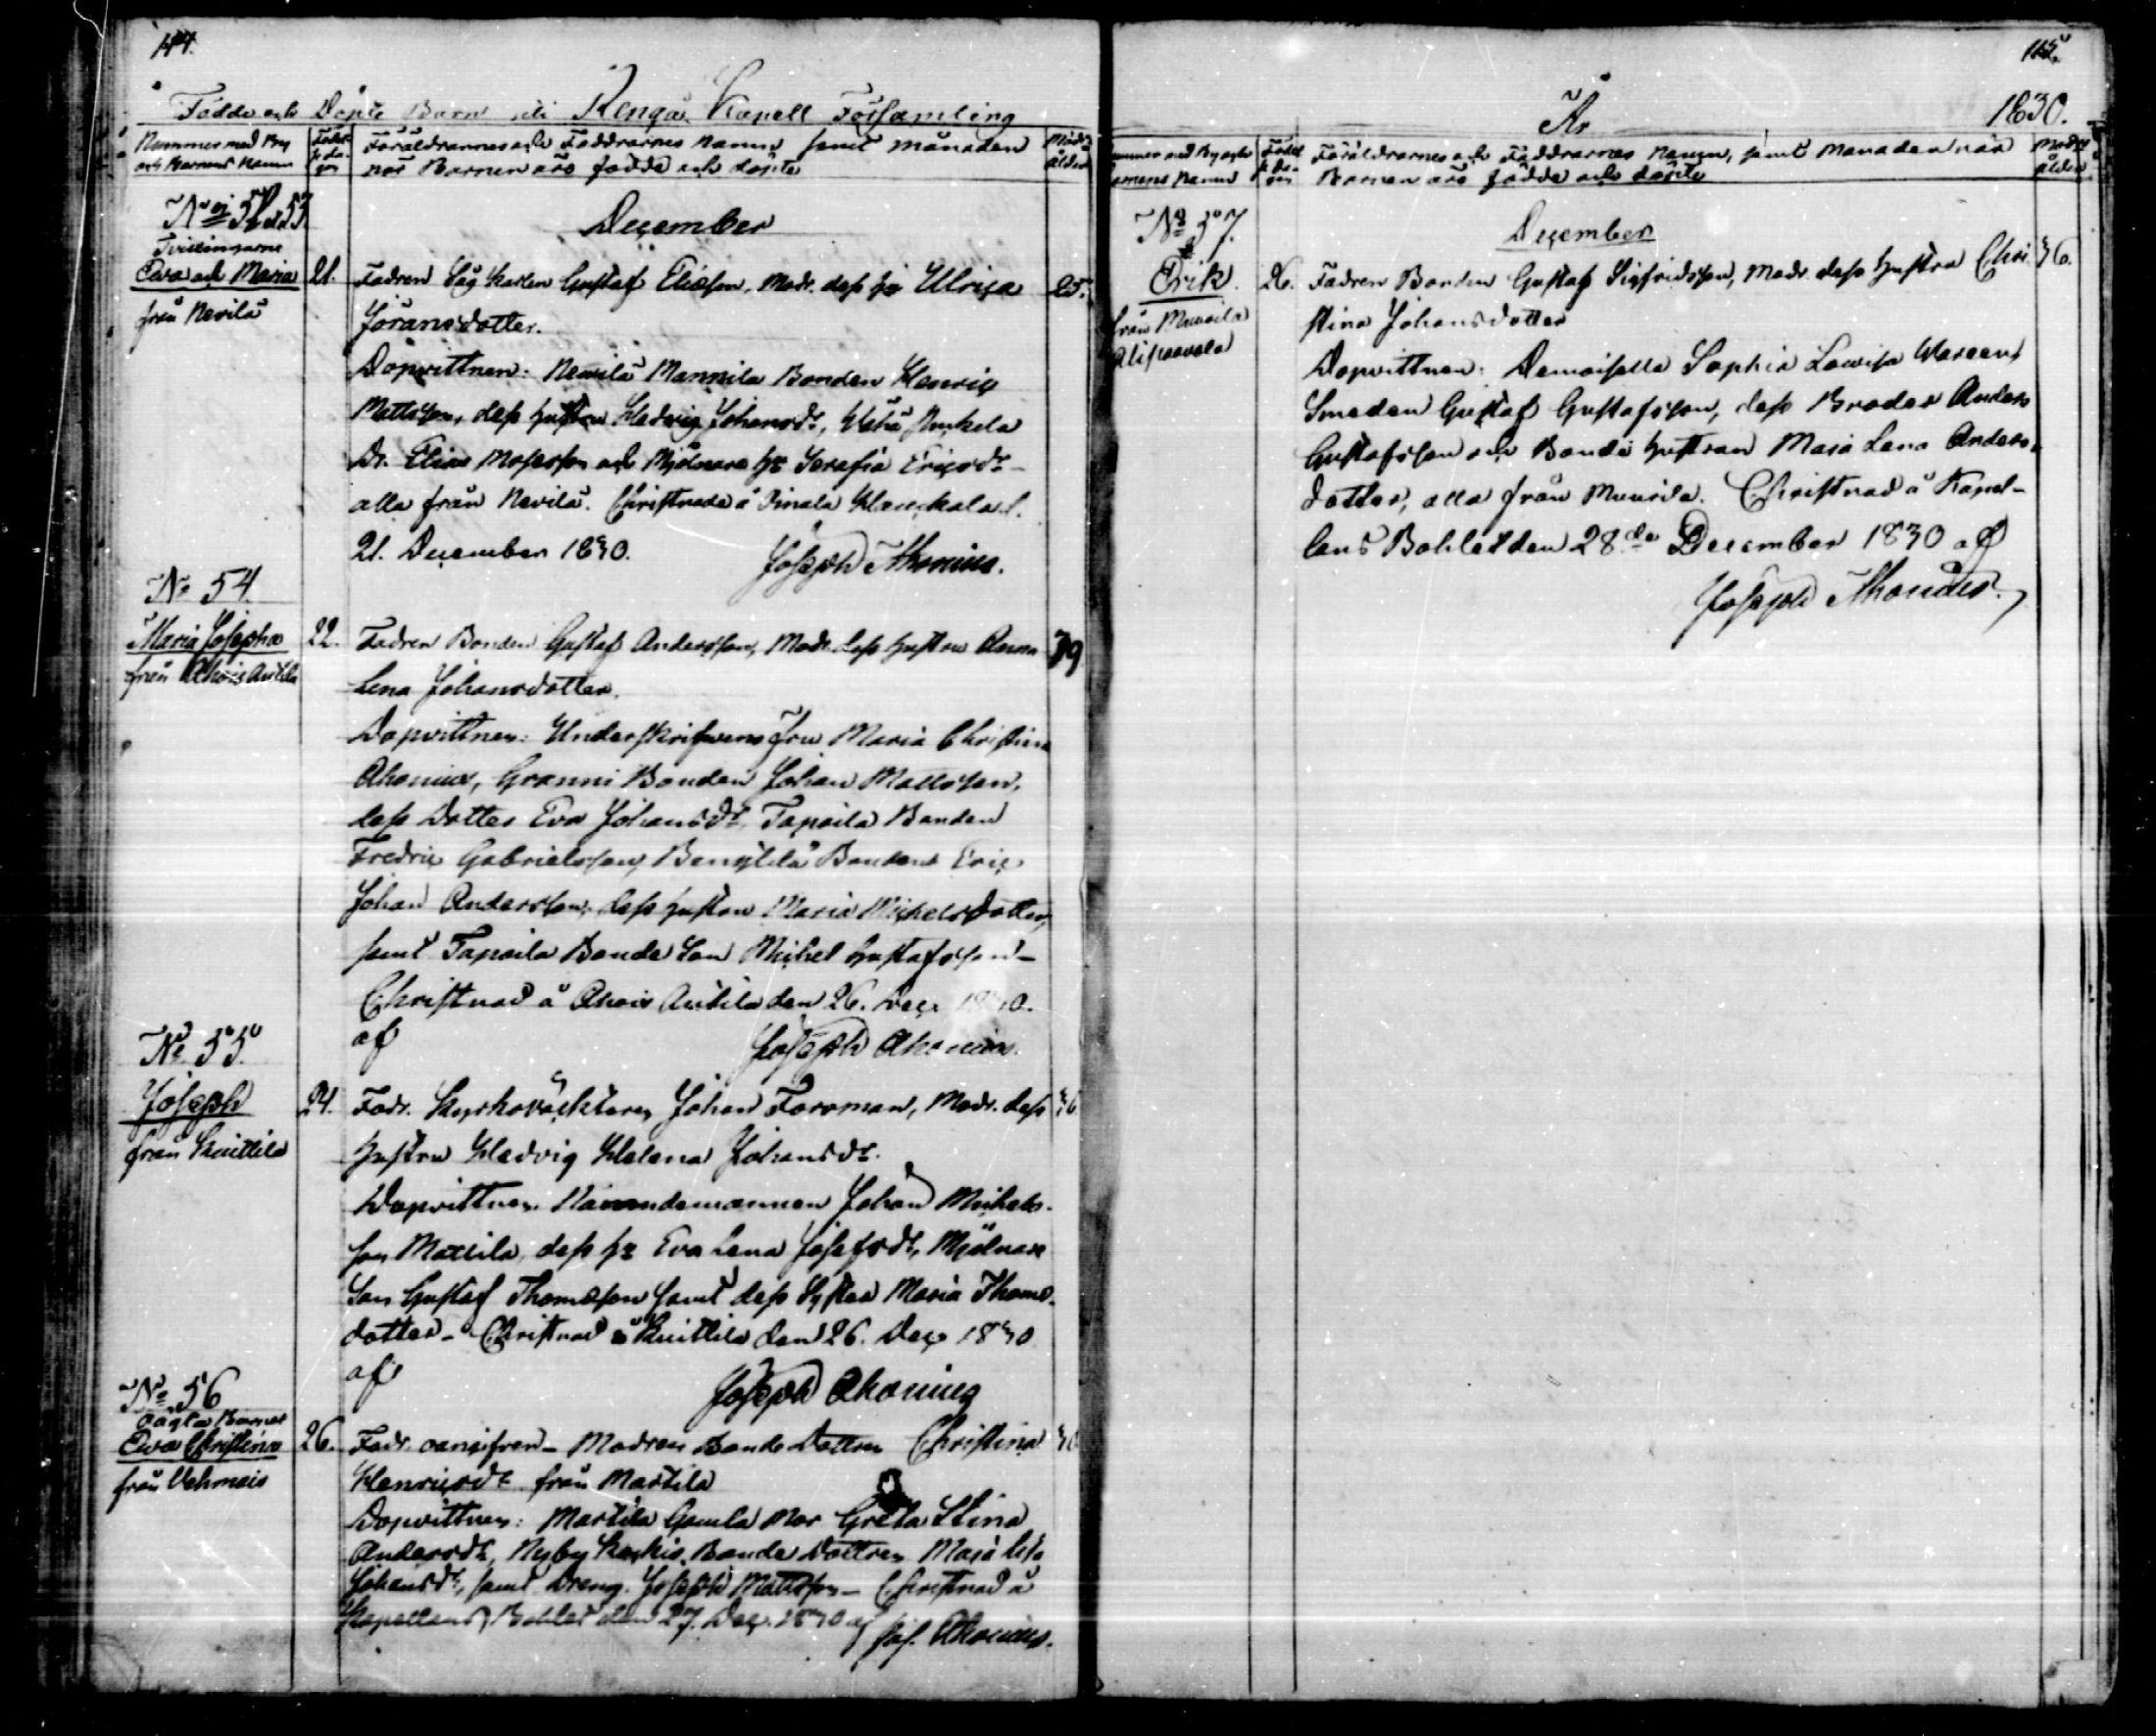 144.
Födde och Döpte Barn uti Kengis Kapell Församling
Nummer med By och Barnens Namn
Födelse dagen
Föräldrarnes och Faddrarnes Namn samt månaden
när Barnen äro födde och döpte
Modrens ålder
December
N:ris 52 et 53
Tvillingarne
Eva och Maria
från Nevilä
21. Fadren Såg Karlen Gustaf Eliasson, Modr. dess h:u Ulrica 25.
Jöransdotter.
Dopvittnen: Nevilä Mannila Bonden Henric
Mattsson, dess hustru Hedvig Johansdr,
Dr. Elias Mosesson och Mjölnare h:u Serafia Ericsdr
alla från Nevilä. Christnade å
21. December 1830. Joseph Ahonius.
No 54.
Maria Josepha
från Ahois Anttila
22. Fadren Bonden Gustaf Andersson, Modr. dess hustru Anna 39
Lena Johansdotter.
Dopvittnen: Underskrifvens Fru Maria Christina
Ahonius, Granni Bonden Johan Mattsson,
dess Dotter Eva Johansdr, Tapaila Bonden
Fredric Gabrielsson, Benttilä Bonden Eric
Johan Andersson, dess hustru Maria Michelsdotter,
samt Tapaila Bonde Son Michel Gustafsson –
Christnad å Ahois Anttila den 26. Dec. 1830.
af Joseph Ahonius.
No 55.
Joseph
från Knuttila
24. Fadr. Kyrkoväcktaren Johan Forsman, Modr. dess 36
hustru Hedvig Helena Johansdr.
Dopvittnen: Nämndemannen Johan Michels-
son Mattila, dess h:u Eva Lena Josefsdr, Mjölnare
Son Gustaf Thomasson samt dess Syster Maria Thoms-
dotter – Christnad å Knuttila den 26. Dec 1830
af Joseph Ahonius
No 56
Oägta Barnet
Eva Christina
från Vehmais
26. Fadr. oangifven – Modren Bonde Dottren Christina 30
Henricsdr från Marttila
Dopvittnen: Marttila Gamla Mor Greta Stina
Andersdr, Nyby Bonde Dottren Maja
Johansdr, samt Dreng. Joseph Mattsson – Christnad å
Kapellans Bohlet den 27. Dec. 1830 af Jos. Ahonius.
115.
År 1830.
Nummer med By och Barnens Namn
Födelse dagen
Föräldrarnes och Faddrarnes Namn, samt Månaden när
Barnen äro födde och döpte
Modrens ålder
December
No 57.
Erik.
från Munsila
Alipaavola
26. Fadren Bonden Gustaf Sigfridsson, Modr. dess hustru Chri 36.
stina Johansdotter
Dopvittnen: Demoiselle Sophia Lovisa
Smeden Gustaf Gustafsson, dess Broder Anders
Gustafsson och Bonde hustrun Maja Lena Anders-
dotter, alla från Munsila. Christnad å Kapel-
lans Bohlet den 28:de December 1830 af
Joseph Ahonius.